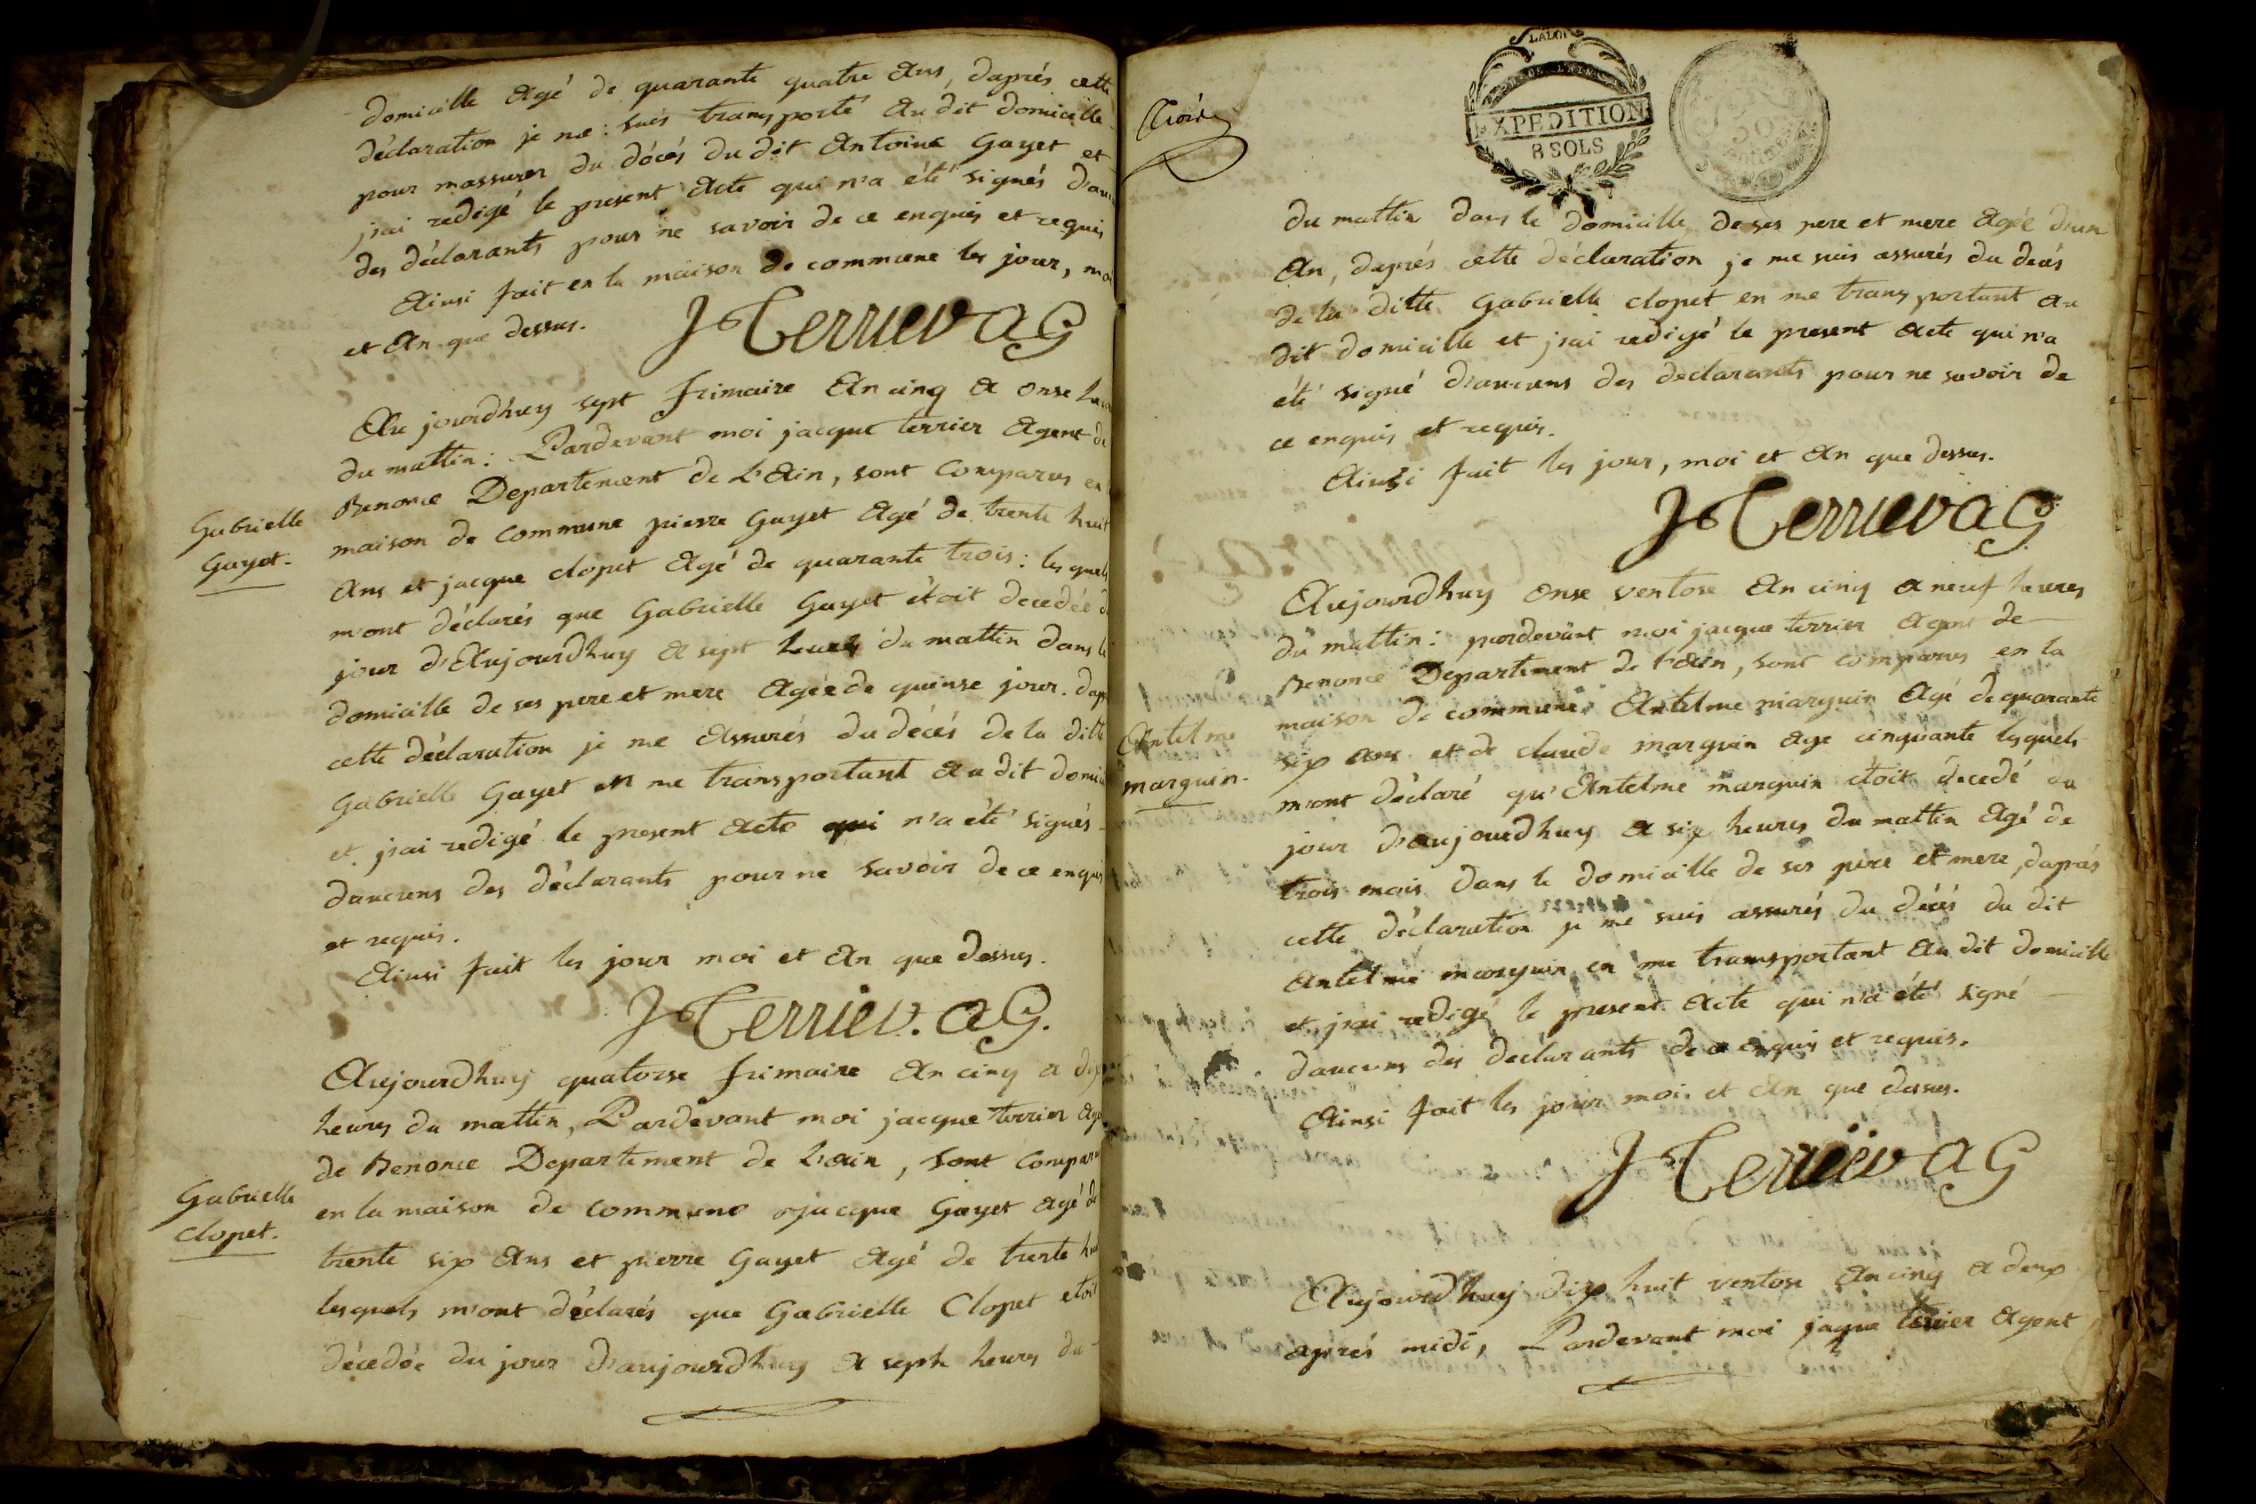 domicille Agé de quarante quatre Ans, daprés cette
déclaration je me: suis transporté Au dit domicille
pour massurer du décés du dit Antoine Gayet et
j'ai redigé le present Acte qui n'a été signés d'au
des déclarants pour ne savoir de ce enquis et requis
Ainsi fait en la maison de commune les jour, moi
et An que dessus.
J Terrier AG
Au jourdhuy sept frimaire An cinq a onse heu
du mattin: Pardevant moi jacque terrier Agent de
Benonce Departement de L'Ain, sont Comparus en
maison de Commune pierre Gayet Agé de trente huit
Ans et jacque clopet Agé de quarante trois: lesquels
m'ont déclarés que Gabrielle Gayet étoit decedée d
jour d'Aujourdhuy A sept heures du mattin dans le
domicille de ses pere et mere Agée de quinse jour. dap
cette déclaration je me Assurés du décés de la ditt
Gabrielle Gayet en me transportant Au dit domi
et j'ai redigé le present Acte qui n'a été signés
daucuns des déclarants pour ne savoir de ce enquis
et requis.
Ainsi fait les jour moi et An que dessus.
J Terrier. AG.
Gabrielle
Gayet.
Aujourdhuy quatorse frimaire An cinq a dix
heures du mattin, Pardevant moi jacque terrier Age
de Benonce Departement de L'ain, sont Compar
en la maison de Commune jacque Gayet Agé de
trente six Ans et pierre Gayet Agé de trente hui
lesquels m'ont déclarés que Gabrielle Clopet etoit
décedée du jour d'aujourdhuy A sept heures du
Gabrielle
clopet.
LA LOI
EXPEDITION
8 SOLS
du mattin dans le domicille de ses pere et mere Agée d'un
An, daprés cette déclaration je me suis assurés du décés
de la ditte Gabrielle clopet en me transportant Au
dit domicille et j'ai redigé le present Acte qui n'a
été signé d'aucuns des declarants pour ne savoir de
ce enquis et requis.
Ainsi fait les jour, moi et An que dessus.
J Terrier AG
Aujourdhuy onse ventose An cinq a neuf heures
du mattin: pardevant moi jacque terrier Agent de
Benonce Departement de L'ain, sont comparus en la
maison de commune Antelme marguin Agé de quarante
six ans et de claude marguin Age cinquante lesquels
m'ont déclaré qu'Antelme marguin étoit decedé du
jour d'aujourdhuy A six heures du mattin Agé de
trois mois dans le domicille de ses pere et mere, daprés
cette déclaration je me suis assurés du décés du dit
Antelme marguin en me transportant Au dit domicille
et j'ai redigé le present Acte qui n'a été signé
daucuns des declarants de ce enquis et requis.
Ainsi fait les jour moi et An que dessus.
J Terrier AG
Antelme
marguin.
Aujourdhuy dix huit ventose An cinq a deux
aprés midi, Pardevant moi jaque terrier Agent